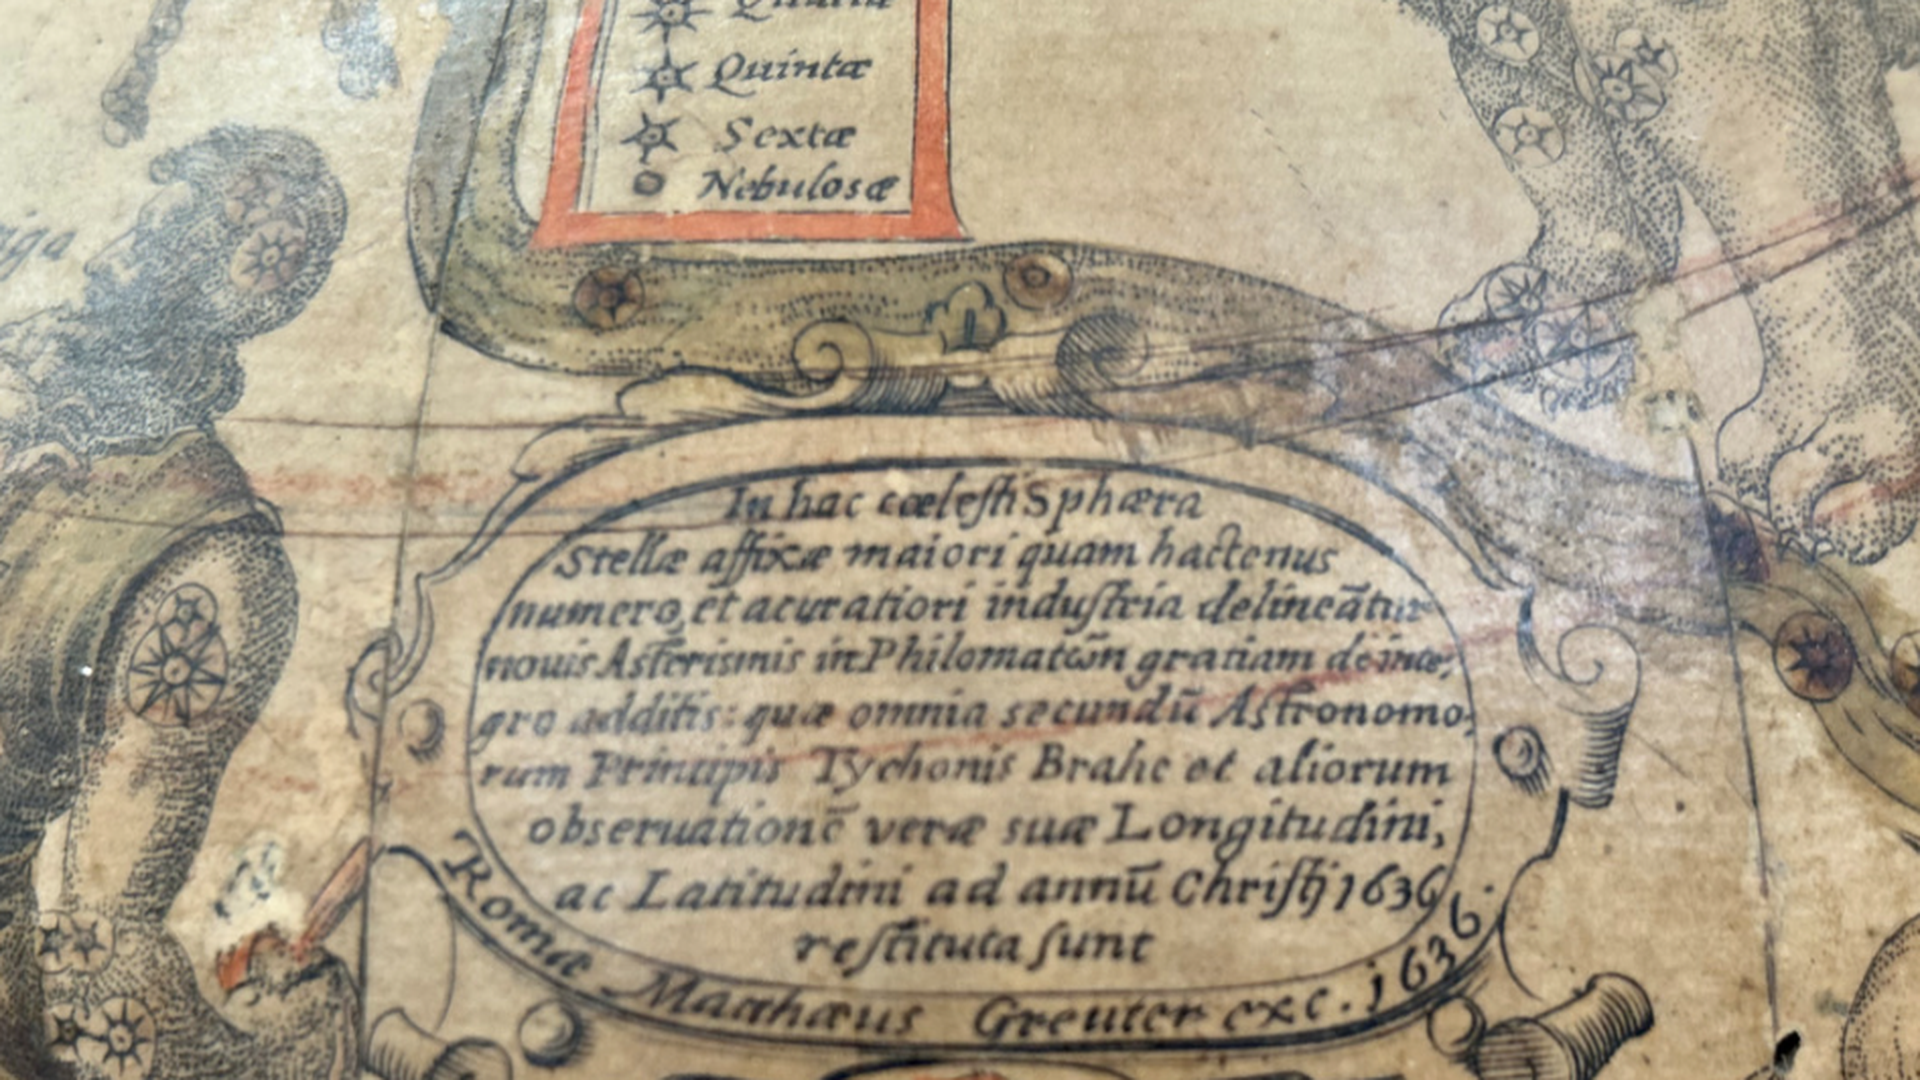 Quintæ
Sextæ
Nebulosæ
In hac cœlesti Sphæra
Stellæ affixæ maiori quam hactenus
numero, et acuratiori industria delineātur
nouis Asterismis in Philomatūn gratiam de inte,
gro additis: quæ omnia secundū Astronomo,
rum Principis Tychonis Brahe et aliorum
obseruationē veræ suæ Longitudini,
ac Latitudini ad annū Christi 1636
restituta sunt
Romæ Matthæus Greuter exc. 1636.